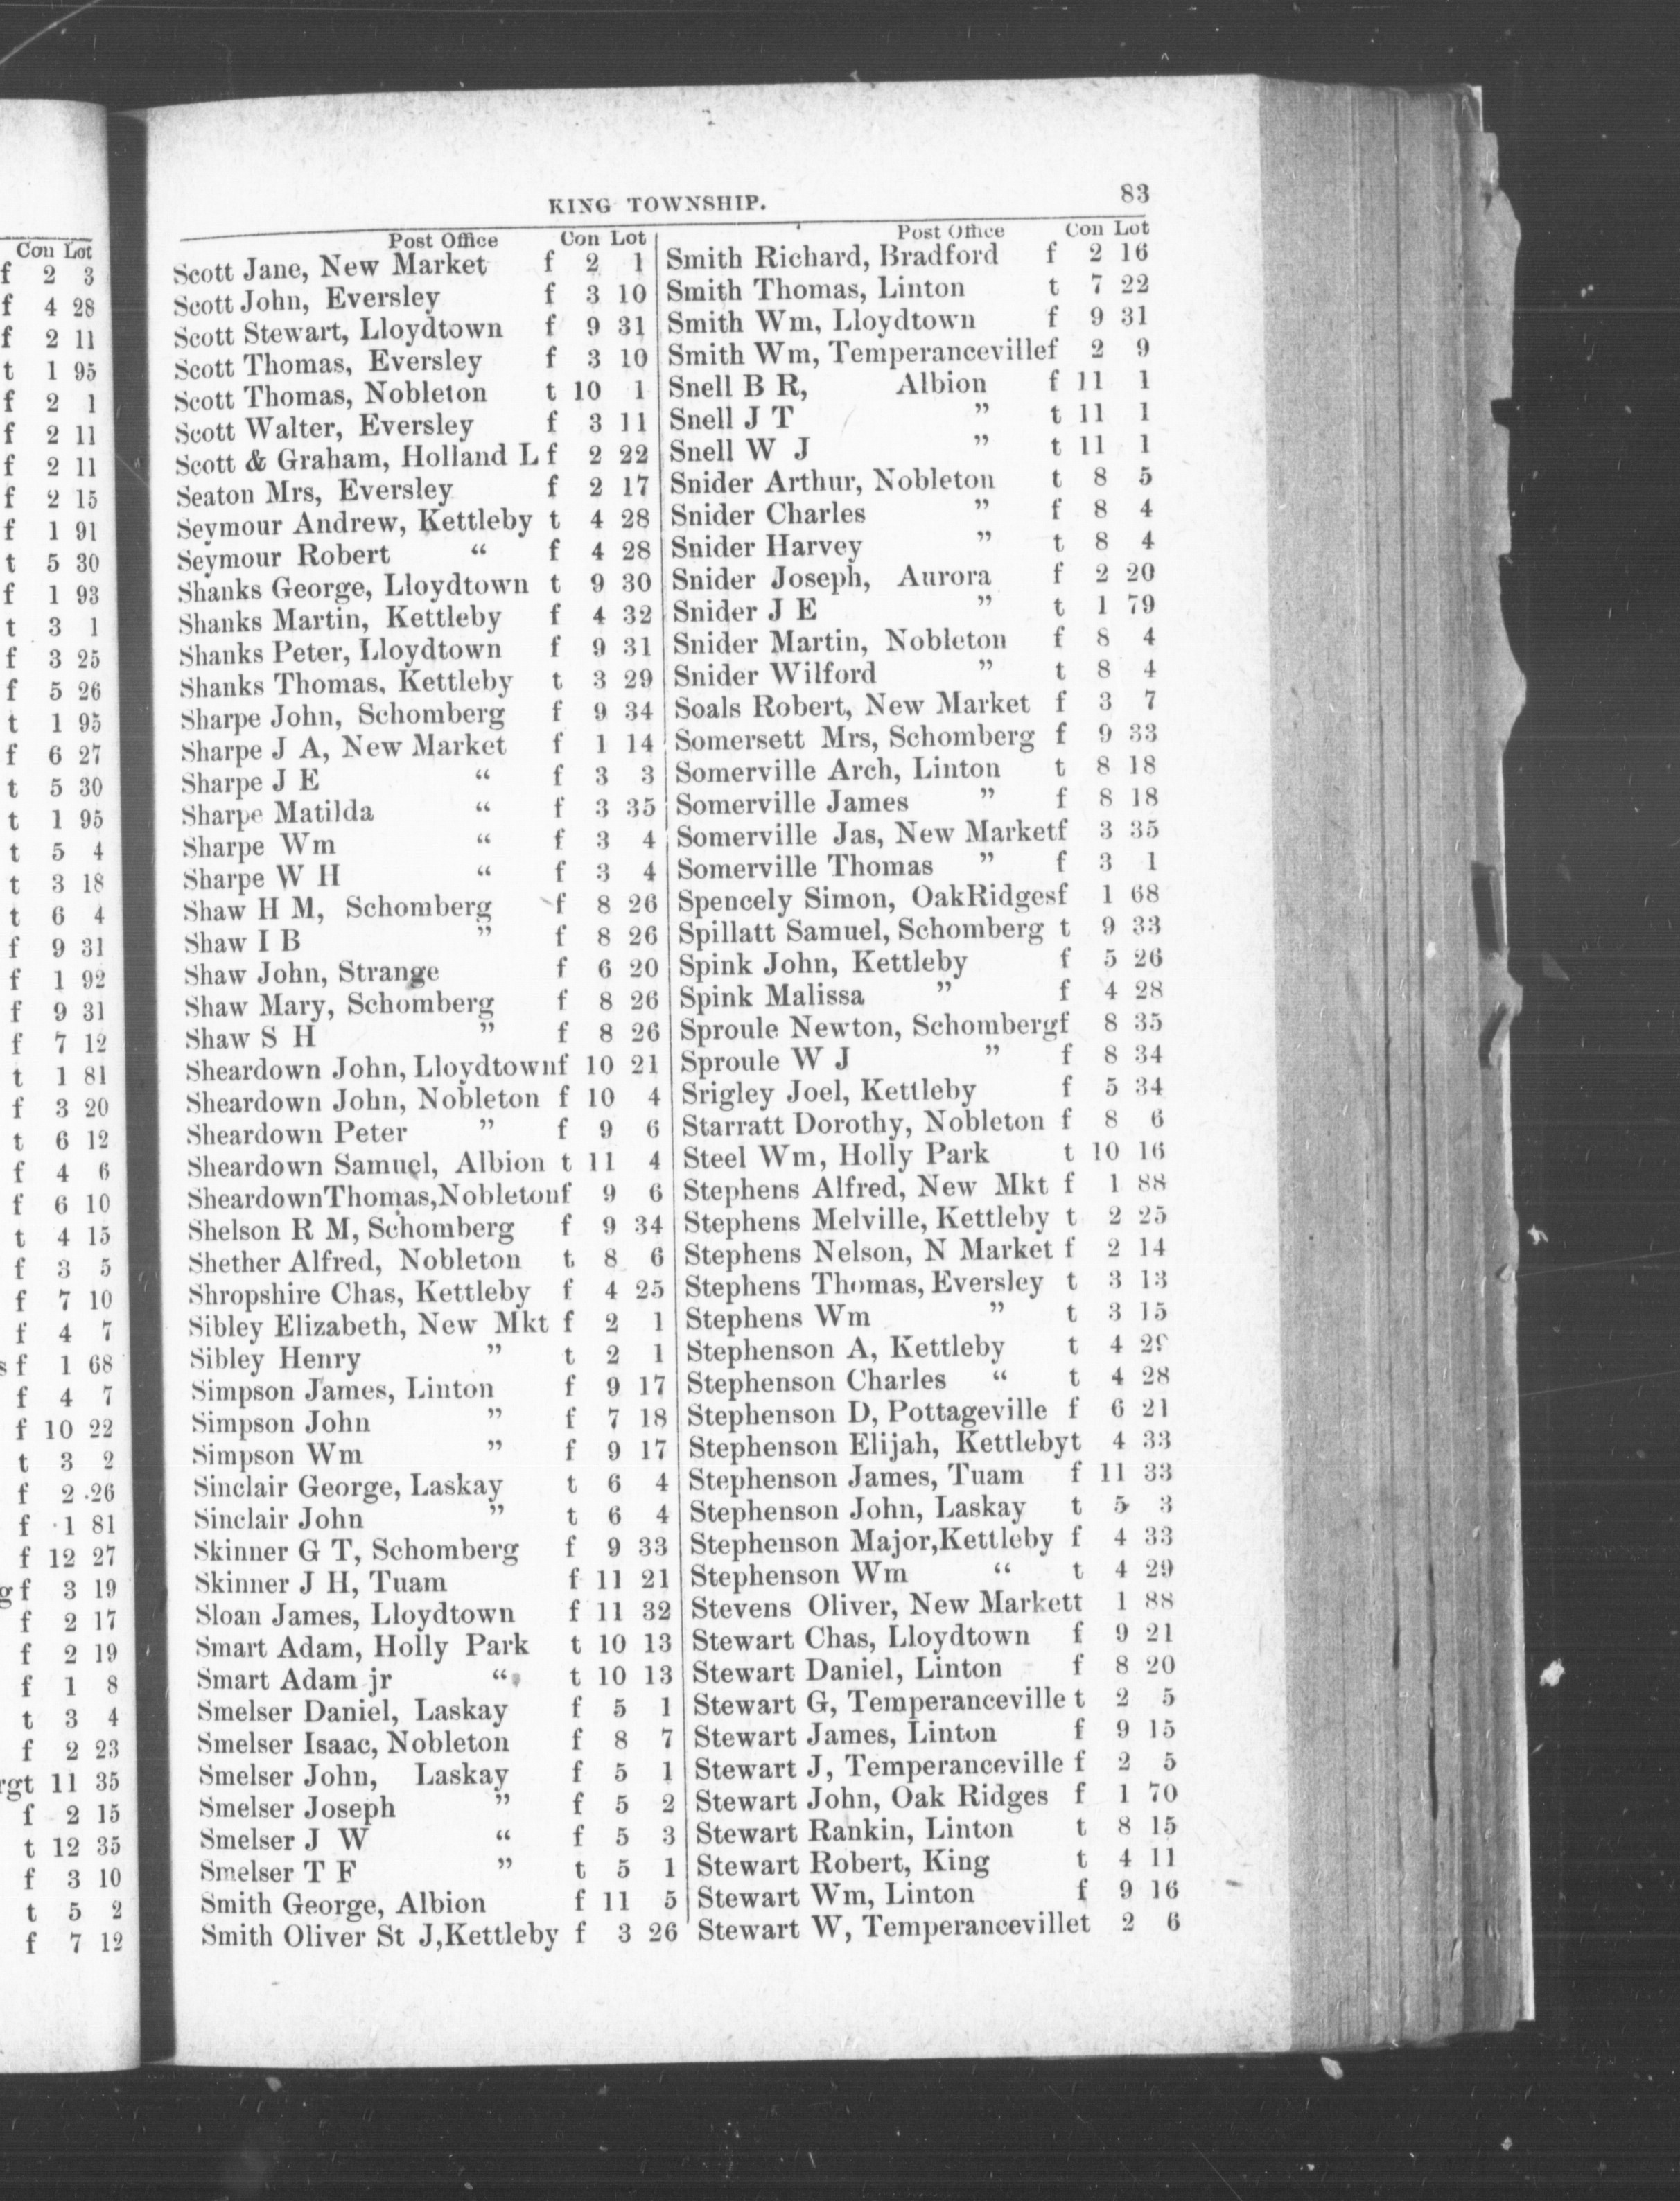 Con Lot
f 2 3
f 4 28
f 2 11
t 1 95
f 2 1
f 2 11
f 2 11
f 2 15
f 1 91
t 5 30
f 1 93
t 3 1
f 3 25
f 5 26
t 1 95
f 6 27
t 5 30
t 1 95
t 5 4
t 3 18
t 6 4
f 9 31
f 1 92
f 9 31
f 7 12
t 1 81
f 3 20
t 6 12
f 4 6
f 6 10
t 4 15
f 3 5
f 7 10
f 4 7
s f 1 68
f 4 7
f 10 22
t 3 2
f 2 26
f 1 81
f 12 27
g f 3 19
f 2 17
f 2 19
f 1 8
t 3 4
f 2 23
rgt 11 35
f 2 15
t 12 35
f 3 10
t 5 2
f 7 12
KING TOWNSHIP. 83
Post Office Con Lot
Scott Jane, New Market f 2 1
Scott John, Eversley f 3 10
Scott Stewart, Lloydtown f 9 31
Scott Thomas, Eversley f 3 10
Scott Thomas, Nobleton t 10 1
Scott Walter, Eversley f 3 11
Scott & Graham, Holland L f 2 22
Seaton Mrs, Eversley f 2 17
Seymour Andrew, Kettleby t 4 28
Seymour Robert “ f 4 28
Shanks George, Lloydtown t 9 30
Shanks Martin, Kettleby f 4 32
Shanks Peter, Lloydtown f 9 31
Shanks Thomas, Kettleby t 3 29
Sharpe John, Schomberg f 9 34
Sharpe J A, New Market f 1 14
Sharpe J E “ f 3 3
Sharpe Matilda “ f 3 35
Sharpe Wm “ f 3 4
Sharpe W H “ f 3 4
Shaw H M, Schomberg f 8 26
Shaw I B ” f 8 26
Shaw John, Strange f 6 20
Shaw Mary, Schomberg f 8 26
Shaw S H ” f 8 26
Sheardown John, Lloydtownf 10 21
Sheardown John, Nobleton f 10 4
Sheardown Peter ” f 9 6
Sheardown Samuel, Albion t 11 4
SheardownThomas,Nobletonf 9 6
Shelson R M, Schomberg f 9 34
Shether Alfred, Nobleton t 8 6
Shropshire Chas, Kettleby f 4 25
Sibley Elizabeth, New Mkt f 2 1
Sibley Henry ” t 2 1
Simpson James, Linton f 9 17
Simpson John ” f 7 18
Simpson Wm ” f 9 17
Sinclair George, Laskay t 6 4
Sinclair John ” t 6 4
Skinner G T, Schomberg f 9 33
Skinner J H, Tuam f 11 21
Sloan James, Lloydtown f 11 32
Smart Adam, Holly Park t 10 13
Smart Adam jr “ t 10 13
Smelser Daniel, Laskay f 5 1
Smelser Isaac, Nobleton f 8 7
Smelser John, Laskay f 5 1
Smelser Joseph ” f 5 2
Smelser J W “ f 5 3
Smelser T F ” t 5 1
Smith George, Albion f 11 5
Smith Oliver St J,Kettleby f 3 26
Post Office Con Lot
Smith Richard, Bradford f 2 16
Smith Thomas, Linton t 7 22
Smith Wm, Lloydtown f 9 31
Smith Wm, Temperancevillef 2 9
Snell B R, Albion f 11 1
Snell J T ” t 11 1
Snell W J ” t 11 1
Snider Arthur, Nobleton t 8 5
Snider Charles ” f 8 4
Snider Harvey ” t 8 4
Snider Joseph, Aurora f 2 20
Snider J E ” t 1 79
Snider Martin, Nobleton f 8 4
Snider Wilford ” t 8 4
Soals Robert, New Market f 3 7
Somersett Mrs, Schomberg f 9 33
Somerville Arch, Linton t 8 18
Somerville James ” f 8 18
Somerville Jas, New Marketf 3 35
Somerville Thomas ” f 3 1
Spencely Simon, OakRidgesf 1 68
Spillatt Samuel, Schomberg t 9 33
Spink John, Kettleby f 5 26
Spink Malissa ” f 4 28
Sproule Newton, Schombergf 8 35
Sproule W J ” f 8 34
Srigley Joel, Kettleby f 5 34
Starratt Dorothy, Nobleton f 8 6
Steel Wm, Holly Park t 10 16
Stephens Alfred, New Mkt f 1 88
Stephens Melville, Kettleby t 2 25
Stephens Nelson, N Market f 2 14
Stephens Thomas, Eversley t 3 13
Stephens Wm ” t 3 15
Stephenson A, Kettleby t 4 29
Stephenson Charles “ t 4 28
Stephenson D, Pottageville f 6 21
Stephenson Elijah, Kettlebyt 4 33
Stephenson James, Tuam f 11 33
Stephenson John, Laskay t 5 3
Stephenson Major,Kettleby f 4 33
Stephenson Wm “ t 4 29
Stevens Oliver, New Markett 1 88
Stewart Chas, Lloydtown f 9 21
Stewart Daniel, Linton f 8 20
Stewart G, Temperanceville t 2 5
Stewart James, Linton f 9 15
Stewart J, Temperanceville f 2 5
Stewart John, Oak Ridges f 1 70
Stewart Rankin, Linton t 8 15
Stewart Robert, King t 4 11
Stewart Wm, Linton f 9 16
Stewart W, Temperancevillet 2 6